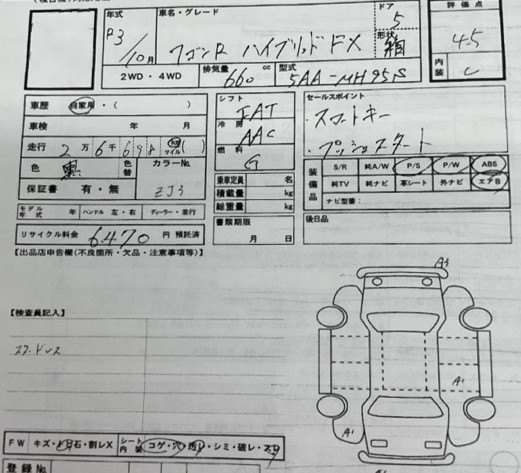 年式
R3
10月
車名・グレード
ワゴンR ハイブリッド FX
ドア
5
形状
箱
評価点
4.5
内装
C
2WD・4WD
排気量
660 cc
型式
5AA-MH95S
車歴 自家用・( )
車検 年 月
走行 2万6千698 マイル( )
色 黒
色替
カラーNo.
ZJ3
保証書 有・無
モデル年式 年 ハンドル 左・右 ディーラー・並行
リサイクル料金 6470 円 預託済
シフト
IAT
冷房
AAC
燃料
G
乗車定員 名
積載量 kg
総重量 kg
書類期限
月 日
セールスポイント
・スマートキー
・プッシュスタート
装備品
S/R 純A/W P/S P/W ABS
純TV 純ナビ 革シート 外ナビ エアB
ナビ型番:
後日品
【出品店申告欄(不良箇所・欠品・注意事項等)】
【検査員記入】
A1
A1
FW キズ・石・割レX
シート内装 コゲ・穴・シミ・破レ・スレ
登録No.